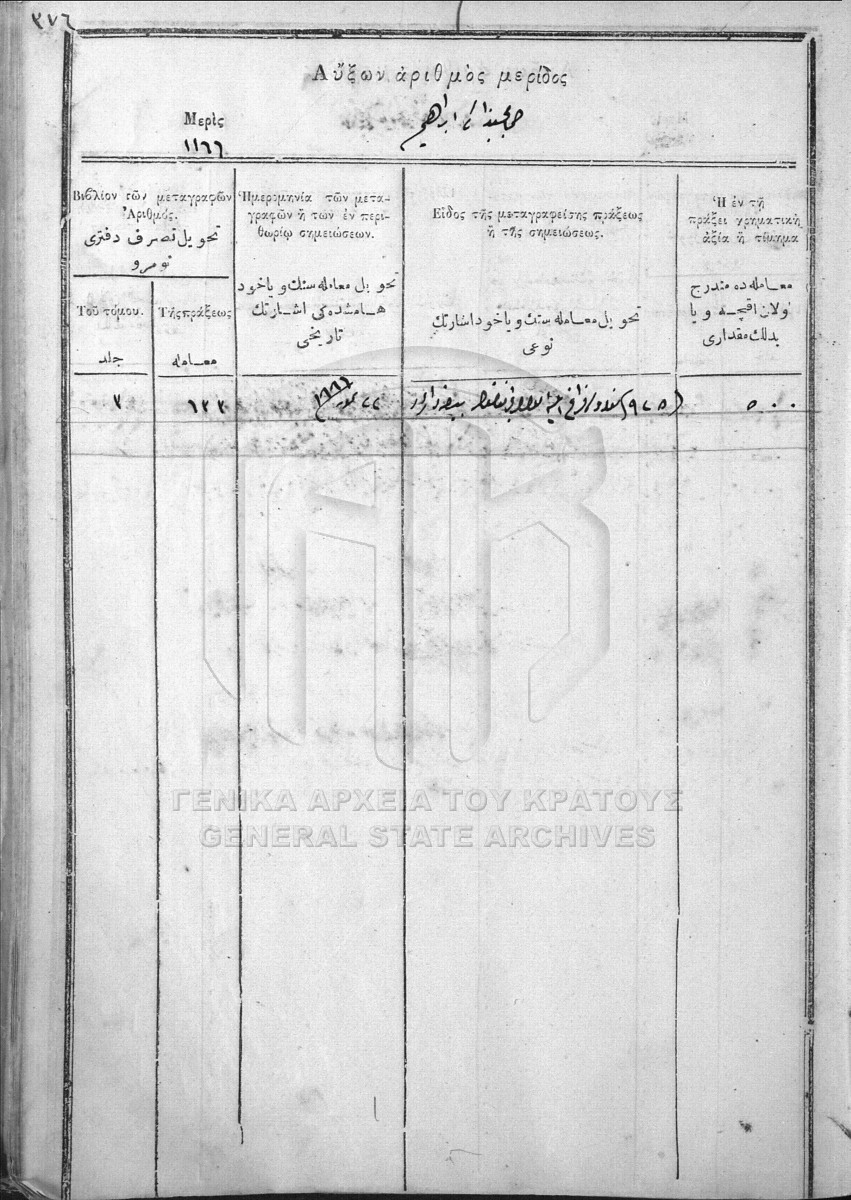 ٣٧٦
Αὔξων ἀριθμὸς μερίδος
Μερὶς
ابراهيم
١١٦٦
Βιβλίον τῶν μεταγραφῶν
Ἀριθμός.
تحويل تصرف دفترى
نومرو
Τοῦ τόμου.
جلد
Τῆς πράξεως
معامله
Ἡμερομηνία τῶν μετα-
γραφῶν ἢ τῶν ἐν περι-
θωρίῳ σημειώσεων.
تحويل معامله سنك وياخود
هامشده كى اشارتك
تاريخى
Εἶδος τῆς μεταγραφείσης πράξεως
ἢ τῆς σημειώσεως.
تحويل معامله سنك وياخود اشارتك
نوعى
Ἡ ἐν τῇ
πράξει χρηματικὴ
ἀξία ἢ τίμημα
معامله ده مندرج
اولان اقچه ويا
بدلك مقدارى
٣
١٣٣
٢٢
(٩٢٥)
٥٠٠
ΓΕΝΙΚΑ ΑΡΧΕΙΑ ΤΟΥ ΚΡΑΤΟΥΣ
GENERAL STATE ARCHIVES